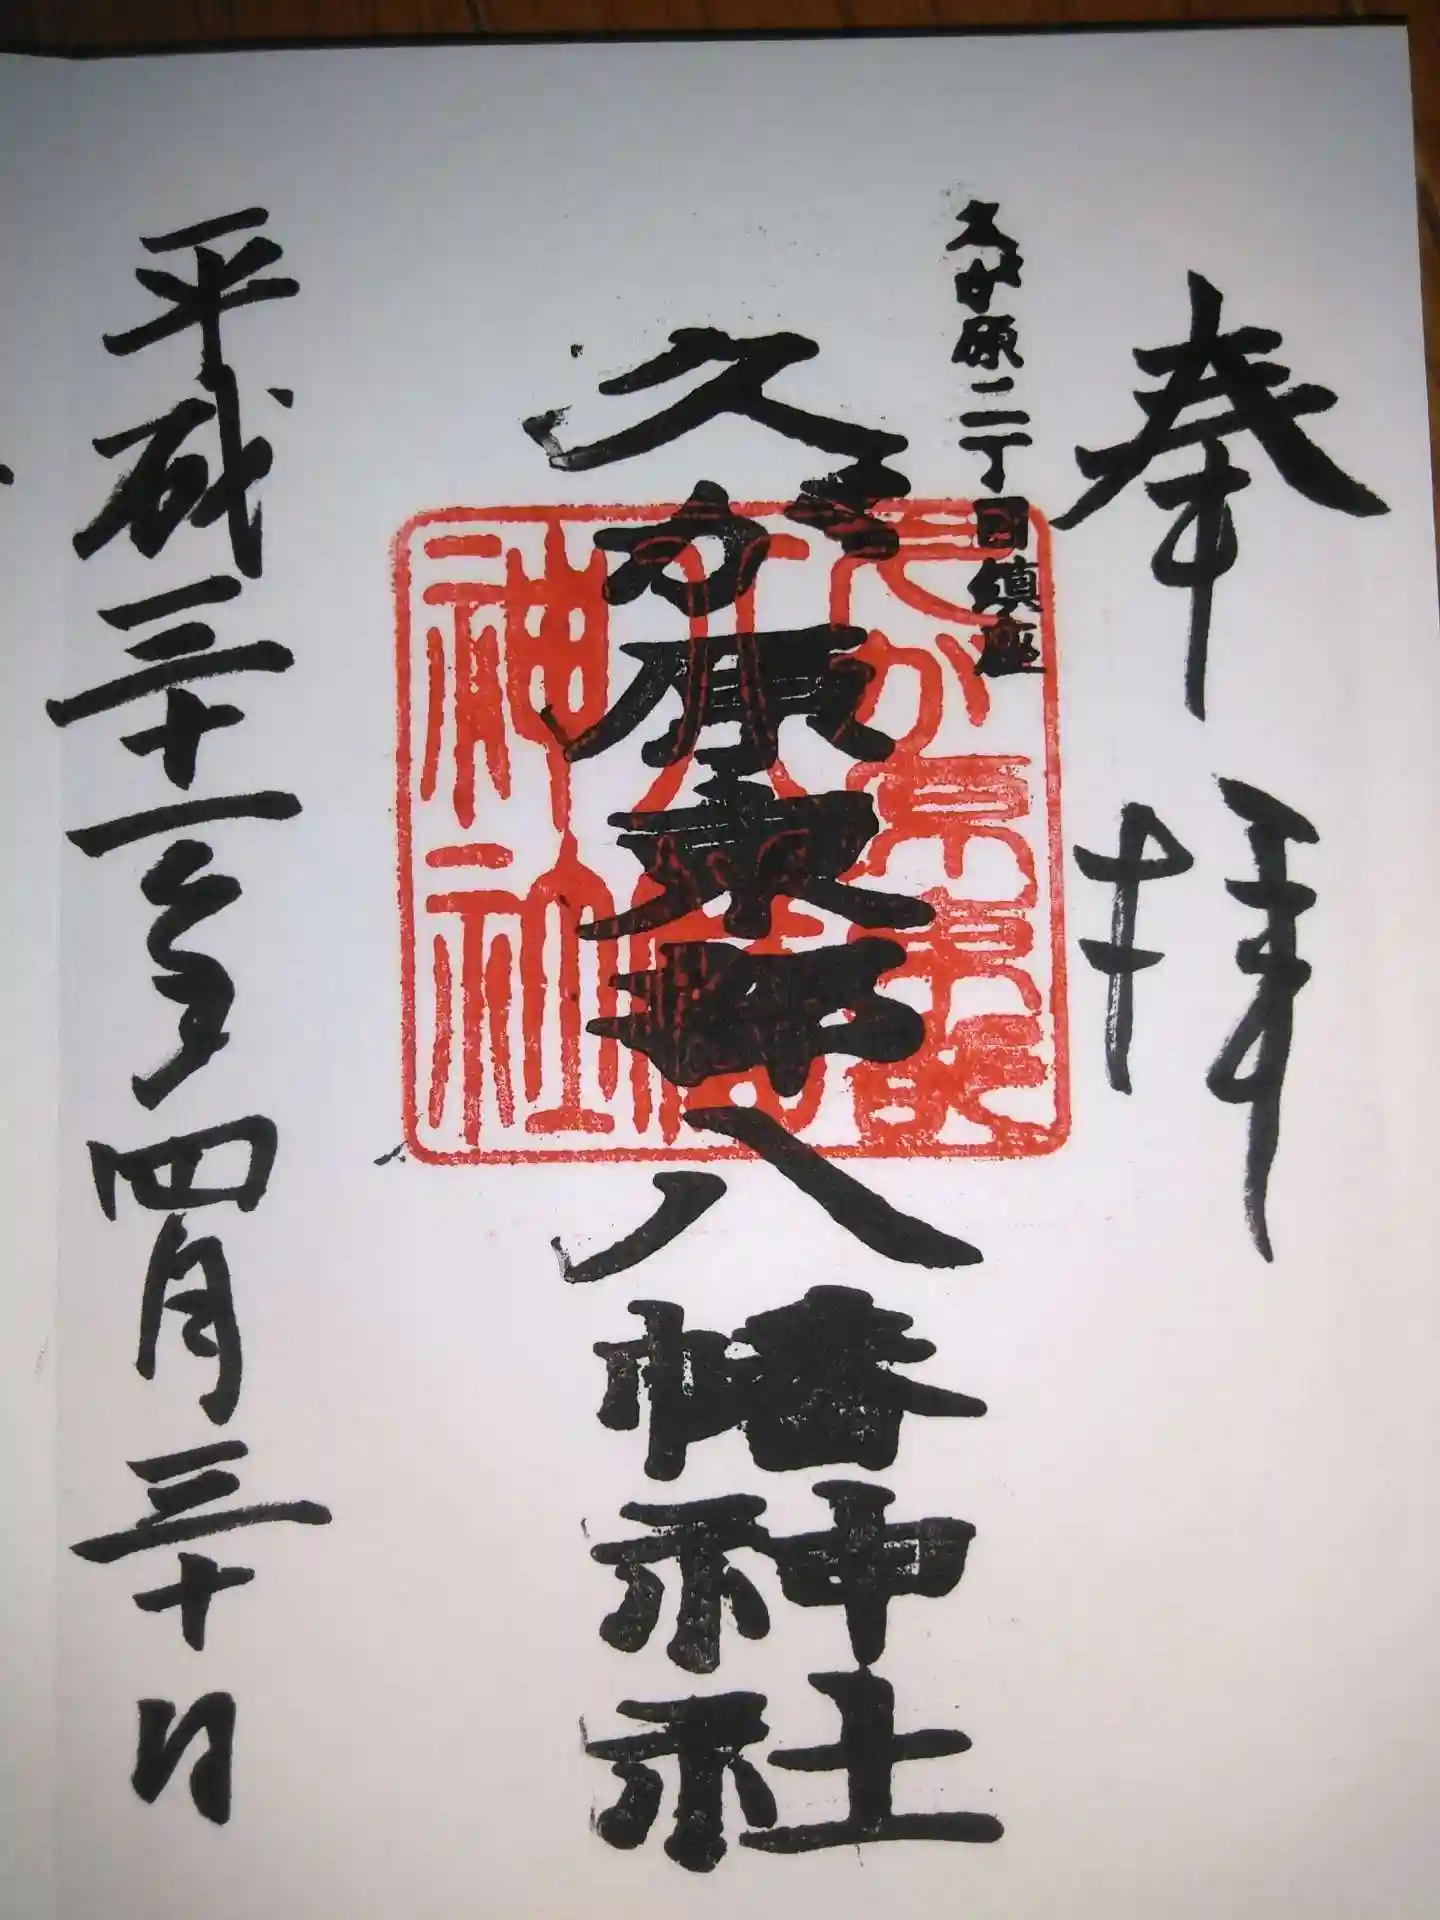 奉拝
久が原二丁目鎮座
久が原東部八幡神社
久が原東部
八幡
神社
平成三十一年四月三十日